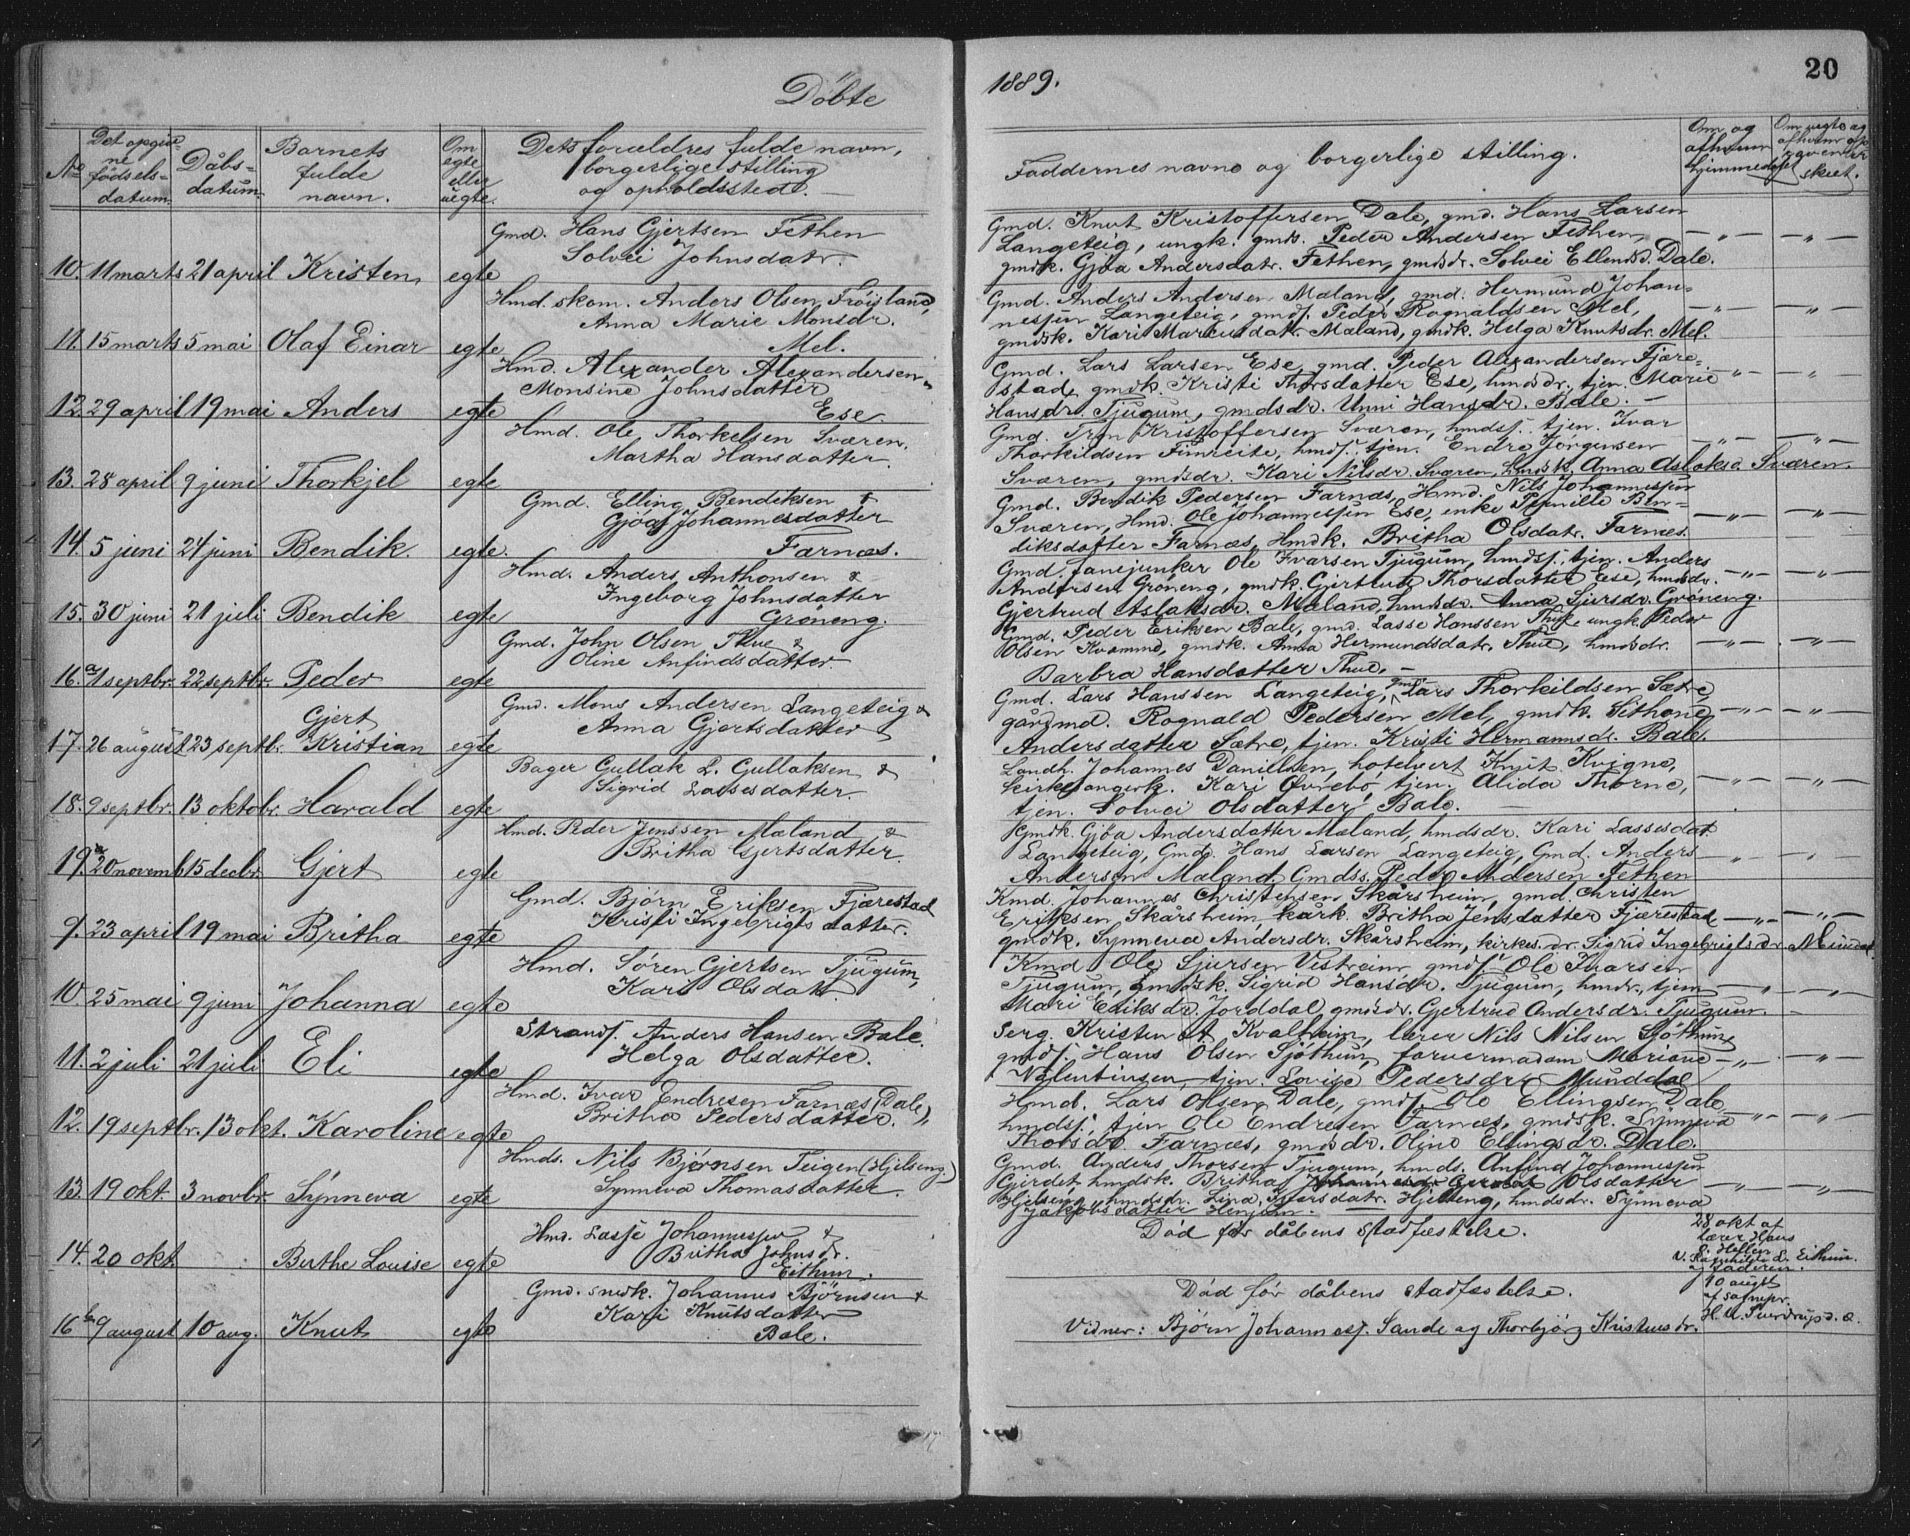 Döbte
1889.
20
No
Det opgivne fødsels-datum.
Dåbs-datum.
Barnets fulde navn.
Om egte eller uegte.
Dets forældres fulde navn, borgerlige stilling og opholdssted.
Faddernes navne og borgerlige stilling.
Om og afhvem hjemmedøbt
10. 11 marts 21 april Kristen, egte
Gmd. Hans Gjertsen Fethen
Solvei Johnsdatr.
Gmd. Knut Kristoffersen Dale, gmd. Hans Larsen
Langeteig, ungk. gmds. Peder Andersen Fethen,
gmdk. Gjöa Andersdatr. Fethen, gmdsdr. Solvei Ellendsd. Dale.
11. 15 marts 5 mai Olaf Einar egte
Hmd. skom. Anders Olsen Fröisland,
Anna Marie Monsdr.
Mel.
Gmd. Anders Andersen Maland, gmd. Hermund Johan-
nessen Langeteig, gmds. Peder Rognaldsen Mel,
gmdsk. Kari Marcusdatr. Maland, gmdk. Helga Knutsdr. Mel.
12. 29 april 19 mai Anders egte
Hmd. Alexander Alexandersen
Monsine Johnsdatter
Ese.
Gmd. Lars Larsen Ese, gmd. Peder Alexandersen Fjære-
stad, gmdk. Kristi Thorsdatter Ese, hmdsdr. tjen. Marie
Hansdr. Tjugum, gmdsdr. Unni Hansdr. Bale.
13. 28 april 9 juni Thorkjel egte
Hmd. Ole Thorkelsen Sværen,
Martha Hansdatter.
Gmd. Kristoffersen Sværen, hmdsf. tjen. Ivar
Thorkildsen Fimreite, hmdsf. tjen. Endre Jörgensen
Sværen, gmdsdr. Kari Nilsdr. Sværen, hmdsk. Anna Aslaksd. Sværen.
14. 5 juni 24 juni Bendik. egte.
Gmd. Elling Bendiksen &
Gjöa Johannesdatter
Farnæs.
Gmd. Bendik Pedersen Farnæs, Hmd. Nils Johannessen
Sværen, Hmd. Ole Johannessen Ese, enke Pernille Ben-
diksdatter Farnæs, Hmdk. Britha Olsdatr. Farnæs.
15. 30 juni 21 juli Bendik egte
Hmd. Anders Anthonsen &
Ingeborg Johnsdatter
Gröneng.
Gmd. fanejunker Ole Ivarsen Tjugum, hmdsf. tjen. Anders
Andersen Gröneng, gmdk. Gjertrud Thorsdatter Ese, hmdsdr.
Gjertrud Aslaksdr. Maland, hmdsdr. Anna Sjursdr. Gröneng.
16.a 1 septbr. 22 septbr. Peder egte
Gmd. John Olsen Thue &
Oline Anfindsdatter
Gmd. Peder Eriksen Bale, gmd. Lasse Hanssen Thue ungk Peder
Olsen Kvamme, gmdk. Anna Hermundsdatr. Thue, hmdsdr.
Barbra Hansdatter Thue.
17. 26 august 23 septb. Gjert Kristian egte
Gmd. Mons Andersen Langeteig &
Anna Gjertsdatter
Gmd. Lars Hanssen Langeteig, gmd. Lars Thorkildsen Sætre,
gårdmd. Rognald Pedersen Mel, gmdk. Sithone
Andersdatter Sætre, tjen. Kristi Hermannsdr. Bale.
18. 9 septbr. 13 oktobr. Harald egte
Bager Gullak L. Gullaksen &
Sigrid Lassesdatter.
Landh. Johannes Danielsen, hotelvert Knut Kvigne,
kirkesangerk. Kari Övrebö, tjen. Alida Thorne,
tjen. Solvei Olsdatter Bale.
19. 20 novemb 15 decbr. Gjert egte
Hmd. Peder Jenssen Maland &
Britha Gjertsdatter.
Gmdk. Gjöa Andersdatter Maland, hmdsdr. Kari Lassesdat
Langeteig, Gmd. Hans Larsen Langeteig, Gmd. Anders
Andersen Maland, Gmdss. Peder Andersen Fethen
9. 23 april 19 mai Britha egte
Gmd. Bjørn Eriksen Fjærestad
Kristi Ingebrigtsdatter.
Kmd. Johannes Christensen Skårsheim, gmd. Christen
Eriksen Skårsheim, kårk. Britha Jensdatter Fjærestad
gmdk. Synneva Andersdr. Skårsheim, kirkes.dr. Sigrid Ingebrigtsdr. Mundal
10. 25 mai 9 juni Johanna egte
Hmd. Sören Gjertsen Tjugum,
Kari Olsdatr.
Kmd Ole Sjursen Vestreim, gmds. Ole Ivarsen
Tjugum, hmdsk. Sigrid Hansdr. Tjugum, hmdr. tjen
Mari Eriksdr. Jorddal, gmdsdr. Gjertrud Andersdr. Tjugum.
11. 2 juli 21 juli Eli egte
Strands. Anders Hansen Bale.
Helga Olsdatter.
Serg. Kristen Kvalheim, lærer Nils Nilsen Sjöthun,
gmds. Hans Olsen Sjöthun, farvermadam Mariane
Valentinsen, tjen. Lovise Pedersdr. Munddal
12. 19 septbr. 13 okt. Karoline egte
Hmd. Ivar Endresen Farnæs (Dale),
Britha Pedersdatter.
Hmd. Lars Olsen Dale, gmds. Ole Ellingsen Dale,
hmdsf. tjen Ole Endresen Farnæs, gmdsk. Synneva
Thorsdr Farnæs, gmdsdr. Oline Ellingsdr. Dale.
13. 19 okt. 3 novbr. Synneva egte
Hmds. Nils Bjørnsen Teigen (Hjelseng)
Synneva Thomasdatter.
Gmd. Anders Thorsen Tjugum, hmds. Anfind Johannessen
Gjerdet, hmdsk. Britha Olsdatter
Hjelseng, hmdsdr. Lina Ivarsdatr. Hjelseng, hmdsdr. Synneva
Jakobsdatter Henjum.
14. 20 okt. Berthe Louise egte
Hmd. Lasse Johannessen &
Britha Johnsdr.
Eithun.
Død før dåbens stadfæstelse.
28 okt af
lærer Hans
16b 9 august 10 aug. Knut egte
Gmd. snedk. Johannes Bjørnsen &
Kari Knutsdatter
Bale.
Død før dåbens stadfæstelse.
Vidner: Bjørn Johanness. Sande og Thorbjörg Kristensdr.
10 augst
af sognepr.